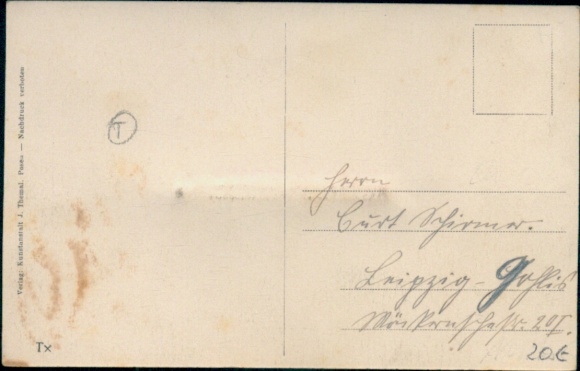 Verlag: Kunstanstalt J. Themal, Posen — Nachdruck verboten
T
Herrn
Curt Schirmer.
Leipzig-Gohlis
Möckernschestr. 20 I.
Tx
20€